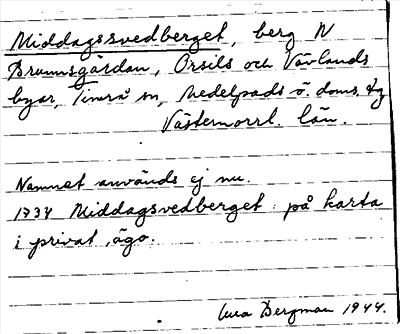 Middagssvedberget, berg N
Brunnsgårdan, Orsils och Vävlands
byar, Timrå sn, Medelpads ö. doms. tg
Västernorrl. län.
Namnet används ej nu.
1734 Middagsvedberget på karta
i privat ägo.
Bergman 1944.